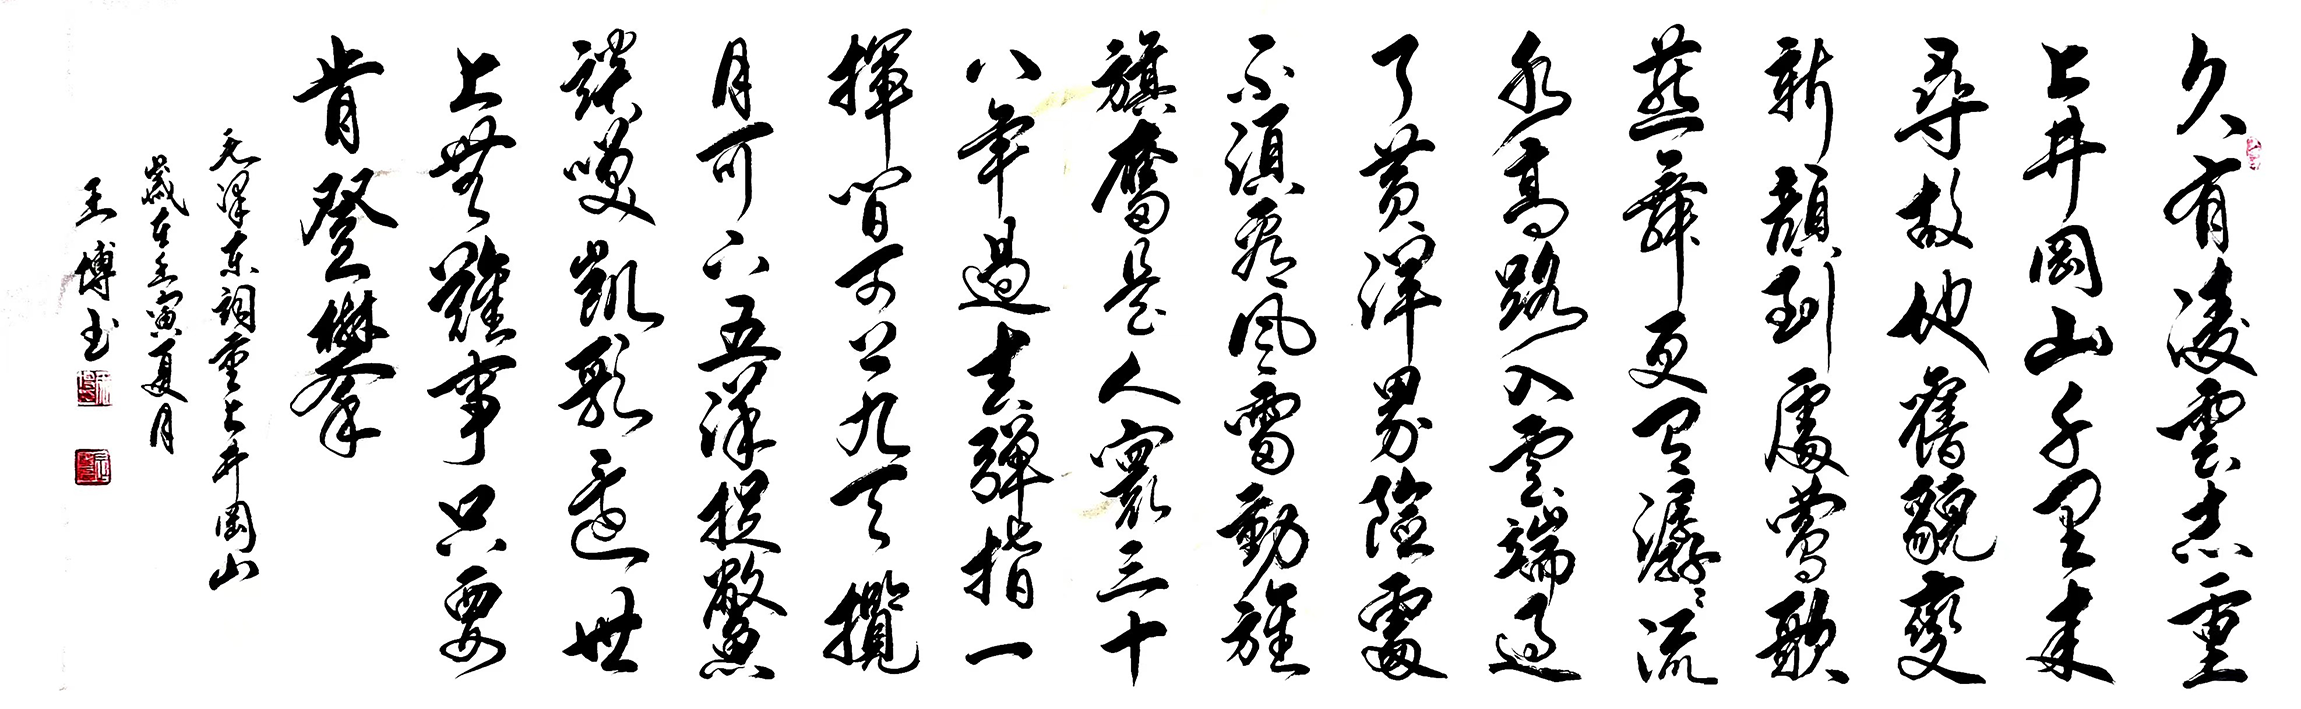 久有凌雲志重
上井岡山千里来
尋故地舊貌變
新顔到處鶯歌
燕舞更有潺〻流
水高路入雲端過
了黄洋界險處
不須看風雷動旌
旗奮是人寰三十
八年過去彈指一
揮間可上九天攬
月可下五洋捉鱉
談笑凱歌還世
上無難事只要
肯登攀
毛澤東詞重上井岡山
歲在壬寅夏月
王博書